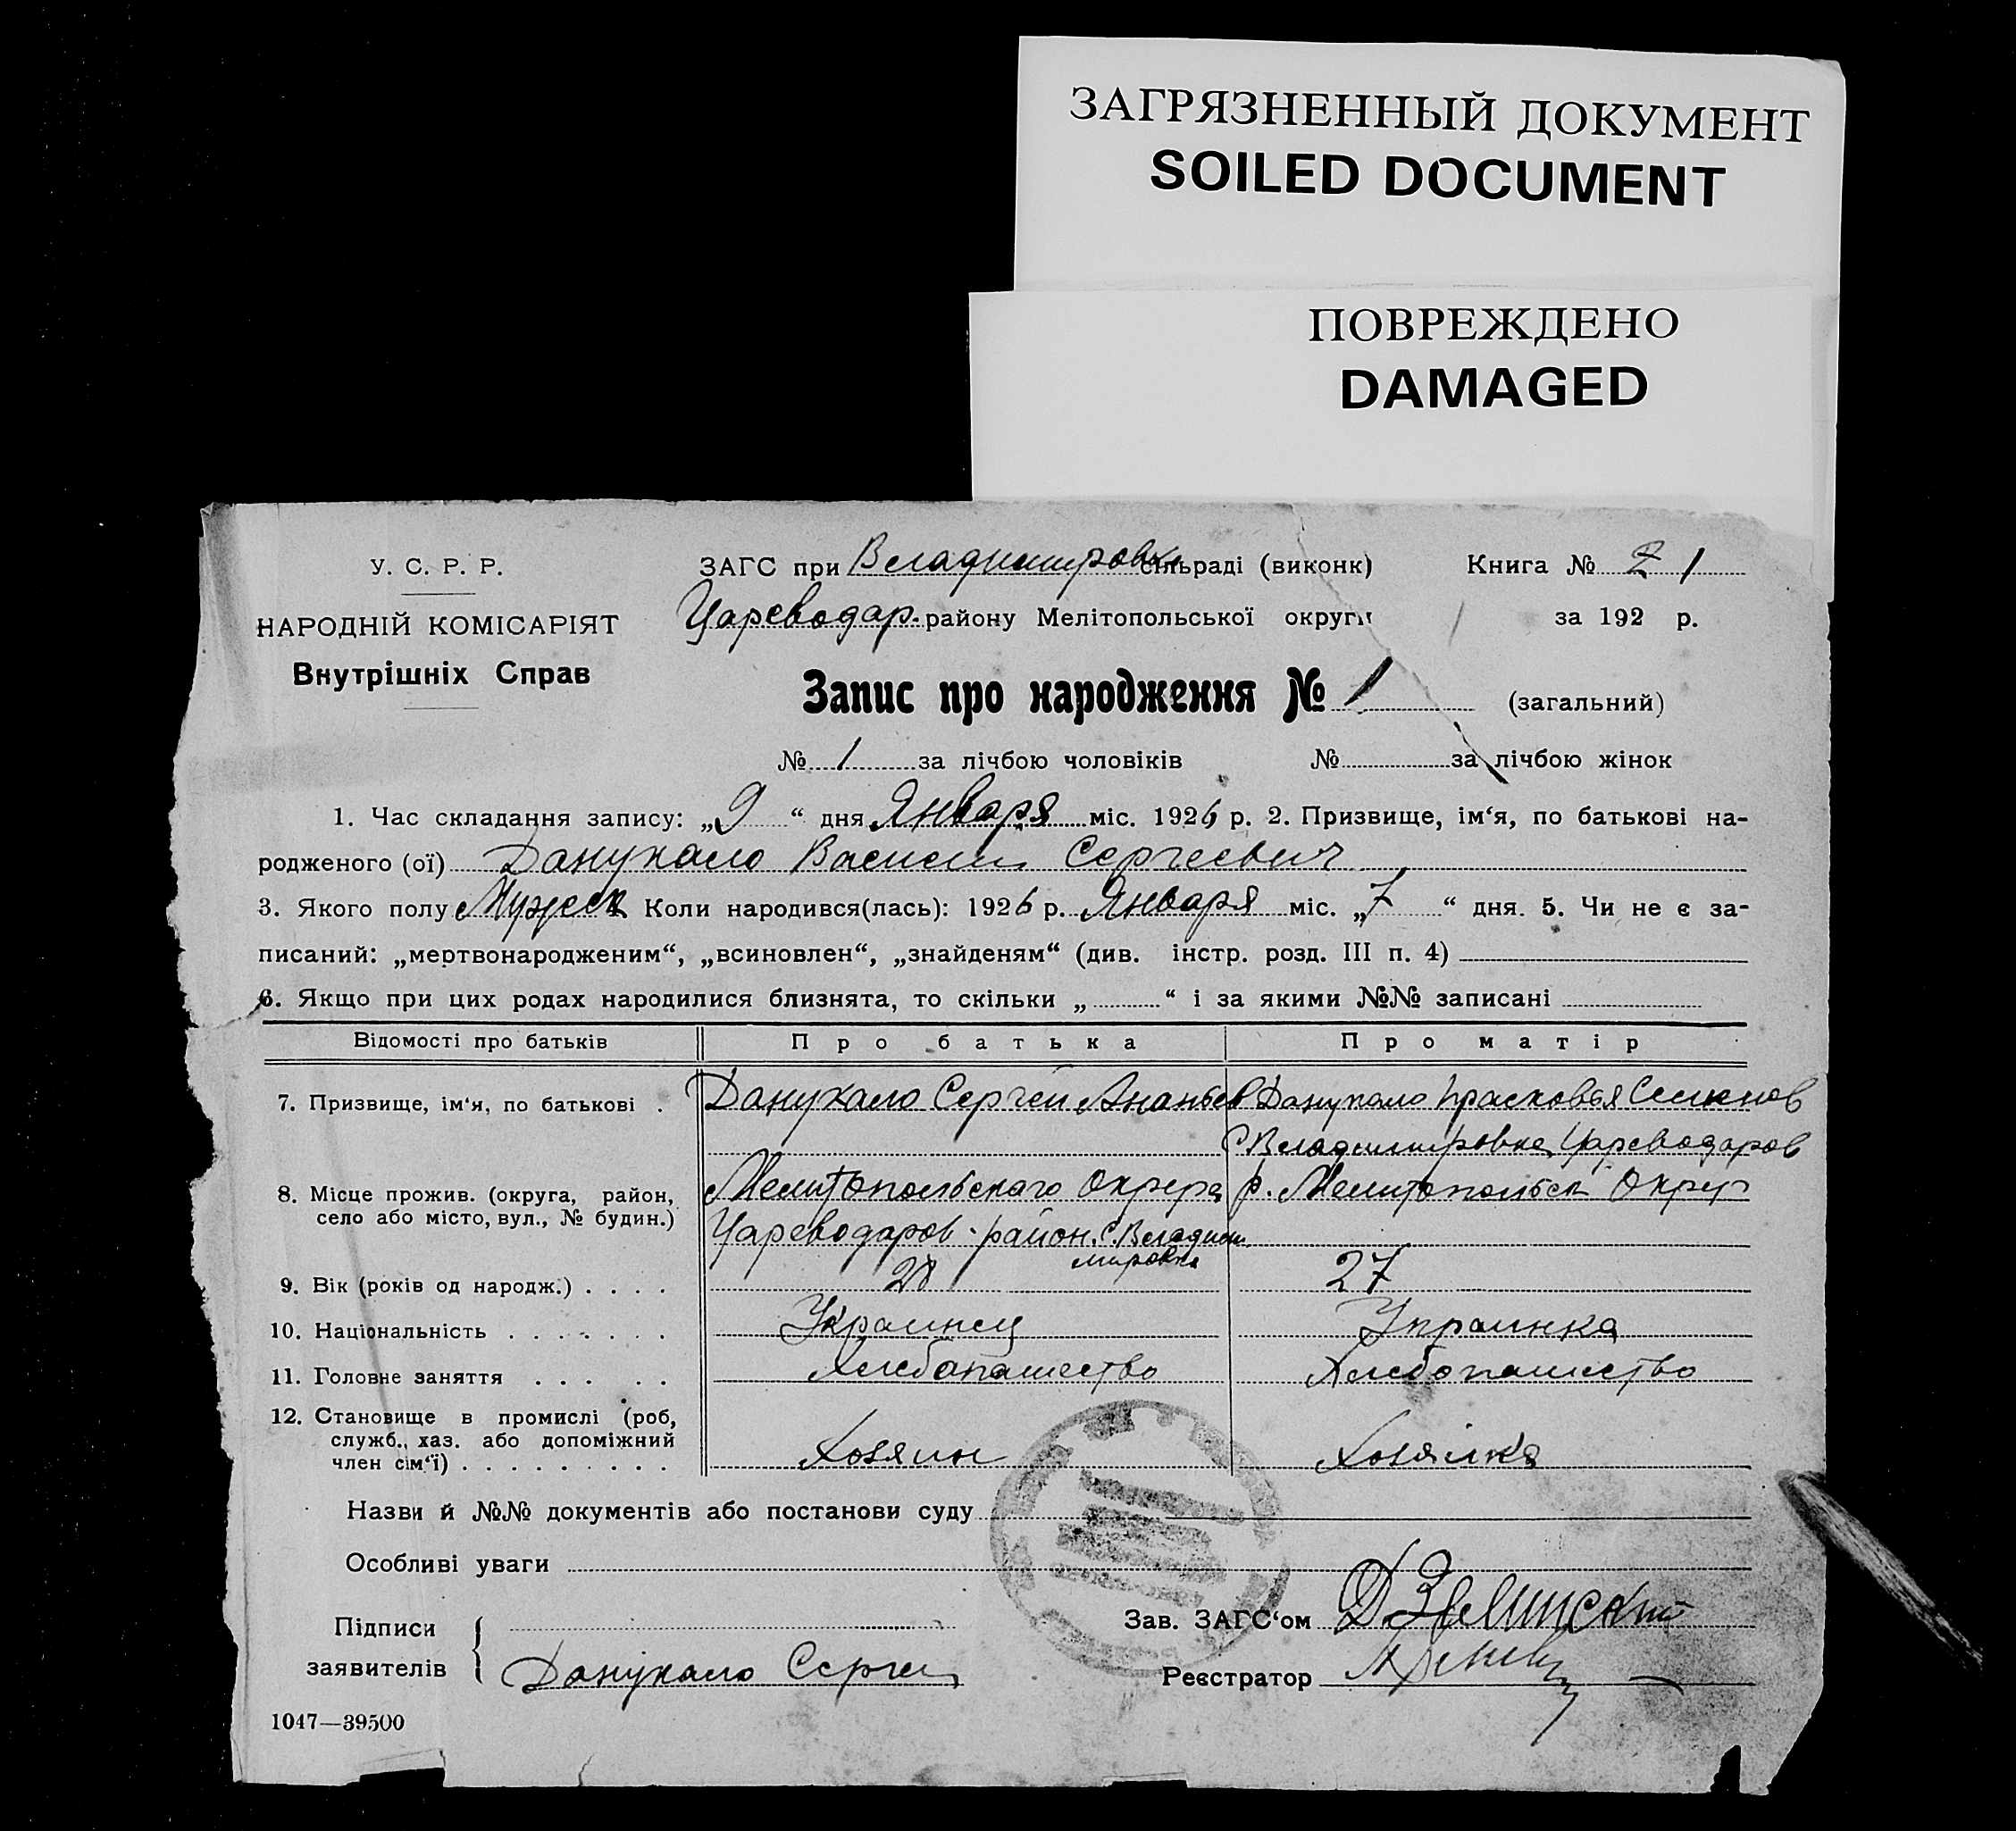 ЗАГРЯЗНЕННЫЙ ДОКУМЕНТ
SOILED DOCUMENT
ПОВРЕЖДЕНО
DAMAGED
У. С. Р. Р.
НАРОДНІЙ КОМІСАРІЯТ
Внутрішніх Справ
ЗАГС при Владимировк сільраді (виконк)
Книга № 1
Цареводар. району Мелітопольської округи
за 192 р.
Запис про народження № 1 (загальний)
№ 1 за лічбою чоловіків № за лічбою жінок
1. Час складання запису: „9“ дня Января міс. 1926 р. 2. Призвище, ім‘я, по батькові на-
родженого (ої) Данукало Василий Сергеевич
3. Якого полу Мужеск Коли народився(лась): 1926 р. Января міс. „7“ дня. 5. Чи не є за-
писаний: „мертвонародженим“, „всиновлен“, „знайденям“ (див. інстр. розд. III п. 4)
6. Якщо при цих родах народилися близнята, то скільки „ “ і за якими №№ записані
Відомості про батьків Про батька Про матір
7. Призвище, ім‘я, по батькові . Данукало Сергей Ананьев Данукало Прасковья Семенов
С Владимировка Цареводаров
8. Місце прожив. (округа, район, Мелитопольского Округа р. Мелитопольск Округ
село або місто, вул., № будин.) Цареводаров. район. С. Владим
мировка
9. Вік (років од народж.) . . . . 28 27
10. Національність . . . . . . . Украинец Украинка
11. Головне заняття . . . . . Хлебопашество Хлебопашество
12. Становище в промислі (роб,
служб., хаз. або допоміжний
член сім‘ї) . . . . . . . . . Хозяин Хозяйка
Назви й №№ документів або постанови суду
Особливі уваги
Підписи
заявителів Данукало Сергей
Зав. ЗАГС‘ом
Реєстратор
1047—39500